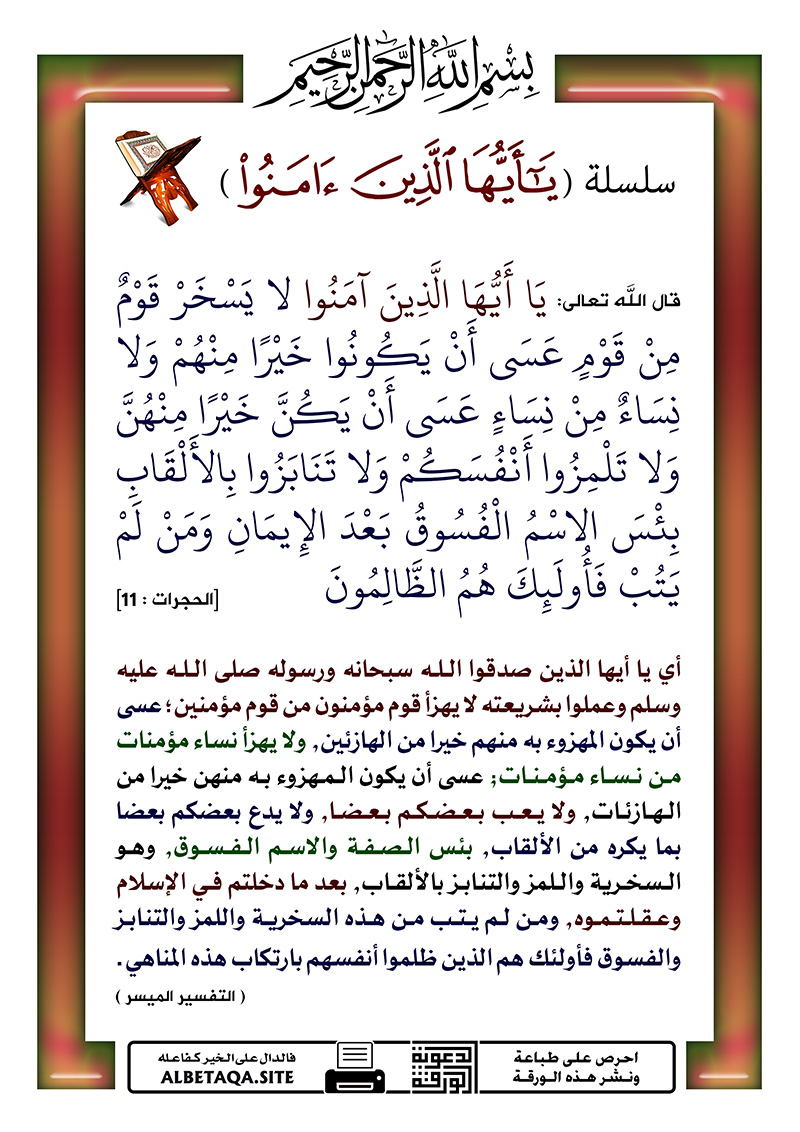 بِسْمِ اللَّهِ الرَّحْمَٰنِ الرَّحِيمِ
سلسلة ( يَـٰٓأَيُّهَا ٱلَّذِينَ ءَامَنُوا۟ )
قال الله تعالى: يَا أَيُّهَا الَّذِينَ آمَنُوا لا يَسْخَرْ قَوْمٌ
مِنْ قَوْمٍ عَسَى أَنْ يَكُونُوا خَيْرًا مِنْهُمْ وَلا
نِسَاءٌ مِنْ نِسَاءٍ عَسَى أَنْ يَكُنَّ خَيْرًا مِنْهُنَّ
وَلا تَلْمِزُوا أَنْفُسَكُمْ وَلا تَنَابَزُوا بِالأَلْقَابِ
بِئْسَ الاسْمُ الْفُسُوقُ بَعْدَ الإِيمَانِ وَمَنْ لَمْ
يَتُبْ فَأُولَئِكَ هُمُ الظَّالِمُونَ [الحجرات : 11]
أي يا أيها الذين صدقوا الله سبحانه ورسوله صلى الله عليه
وسلم وعملوا بشريعته لا يهزأ قوم مؤمنون من قوم مؤمنين؛ عسى
أن يكون المهزوء به منهم خيرا من الهازئين, ولا يهزأ نساء مؤمنات
من نساء مؤمنات; عسى أن يكون المهزوء به منهن خيرا من
الهازئات, ولا يعب بعضكم بعضا, ولا يدع بعضكم بعضا
بما يكره من الألقاب, بئس الصفة والاسم الفسوق, وهو
السخرية واللمز والتنابز بالألقاب, بعد ما دخلتم في الإسلام
وعقلتموه, ومن لم يتب من هذه السخرية واللمز والتنابز
والفسوق فأولئك هم الذين ظلموا أنفسهم بارتكاب هذه المناهي.
( التفسير الميسر )
احرص على طباعة
ونشر هذه الورقة
الورقة الدعوية
فالدال على الخير كفاعله
ALBETAQA.SITE